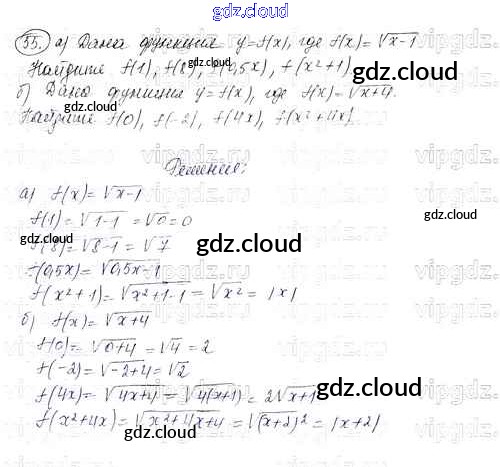 gdz.cloud
55. а) Дана функция y=f(x), где f(x)=√x-1
Найдите f(1), f(8), f(0,5x), f(x²+1)
gdz.cloud
б) Дана функция y=f(x), где f(x)=√x+4.
Найдите f(0), f(-2), f(4x), f(x²+4x)
Решение:
а) f(x)=√x-1
f(1)=√1-1=√0=0
f(8)=√8-1=√7
gdz.cloud
f(0,5x)=√0,5x-1
f(x²+1)=√x²+1-1=√x²=|x|
б) f(x)=√x+4
f(0)=√0+4=√4=2
gdz.cloud
f(-2)=√-2+4=√2
f(4x)=√4x+4=√4(x+1)=2√x+1
gdz.cloud
f(x²+4x)=√x²+4x+4=√(x+2)²=|x+2|
gdz.cloud